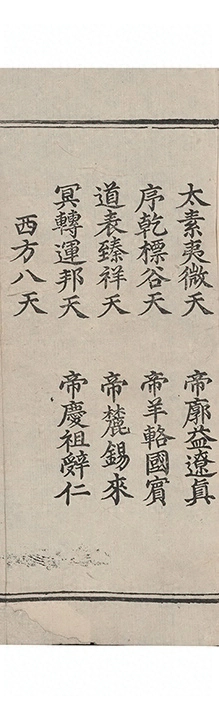 太素夷微天　帝廓益遼真
序乾標谷天　帝羊輅國賓
道表臻祥天　帝麓錫來
冥轉運邦天　帝慶祖辭仁
西方八天